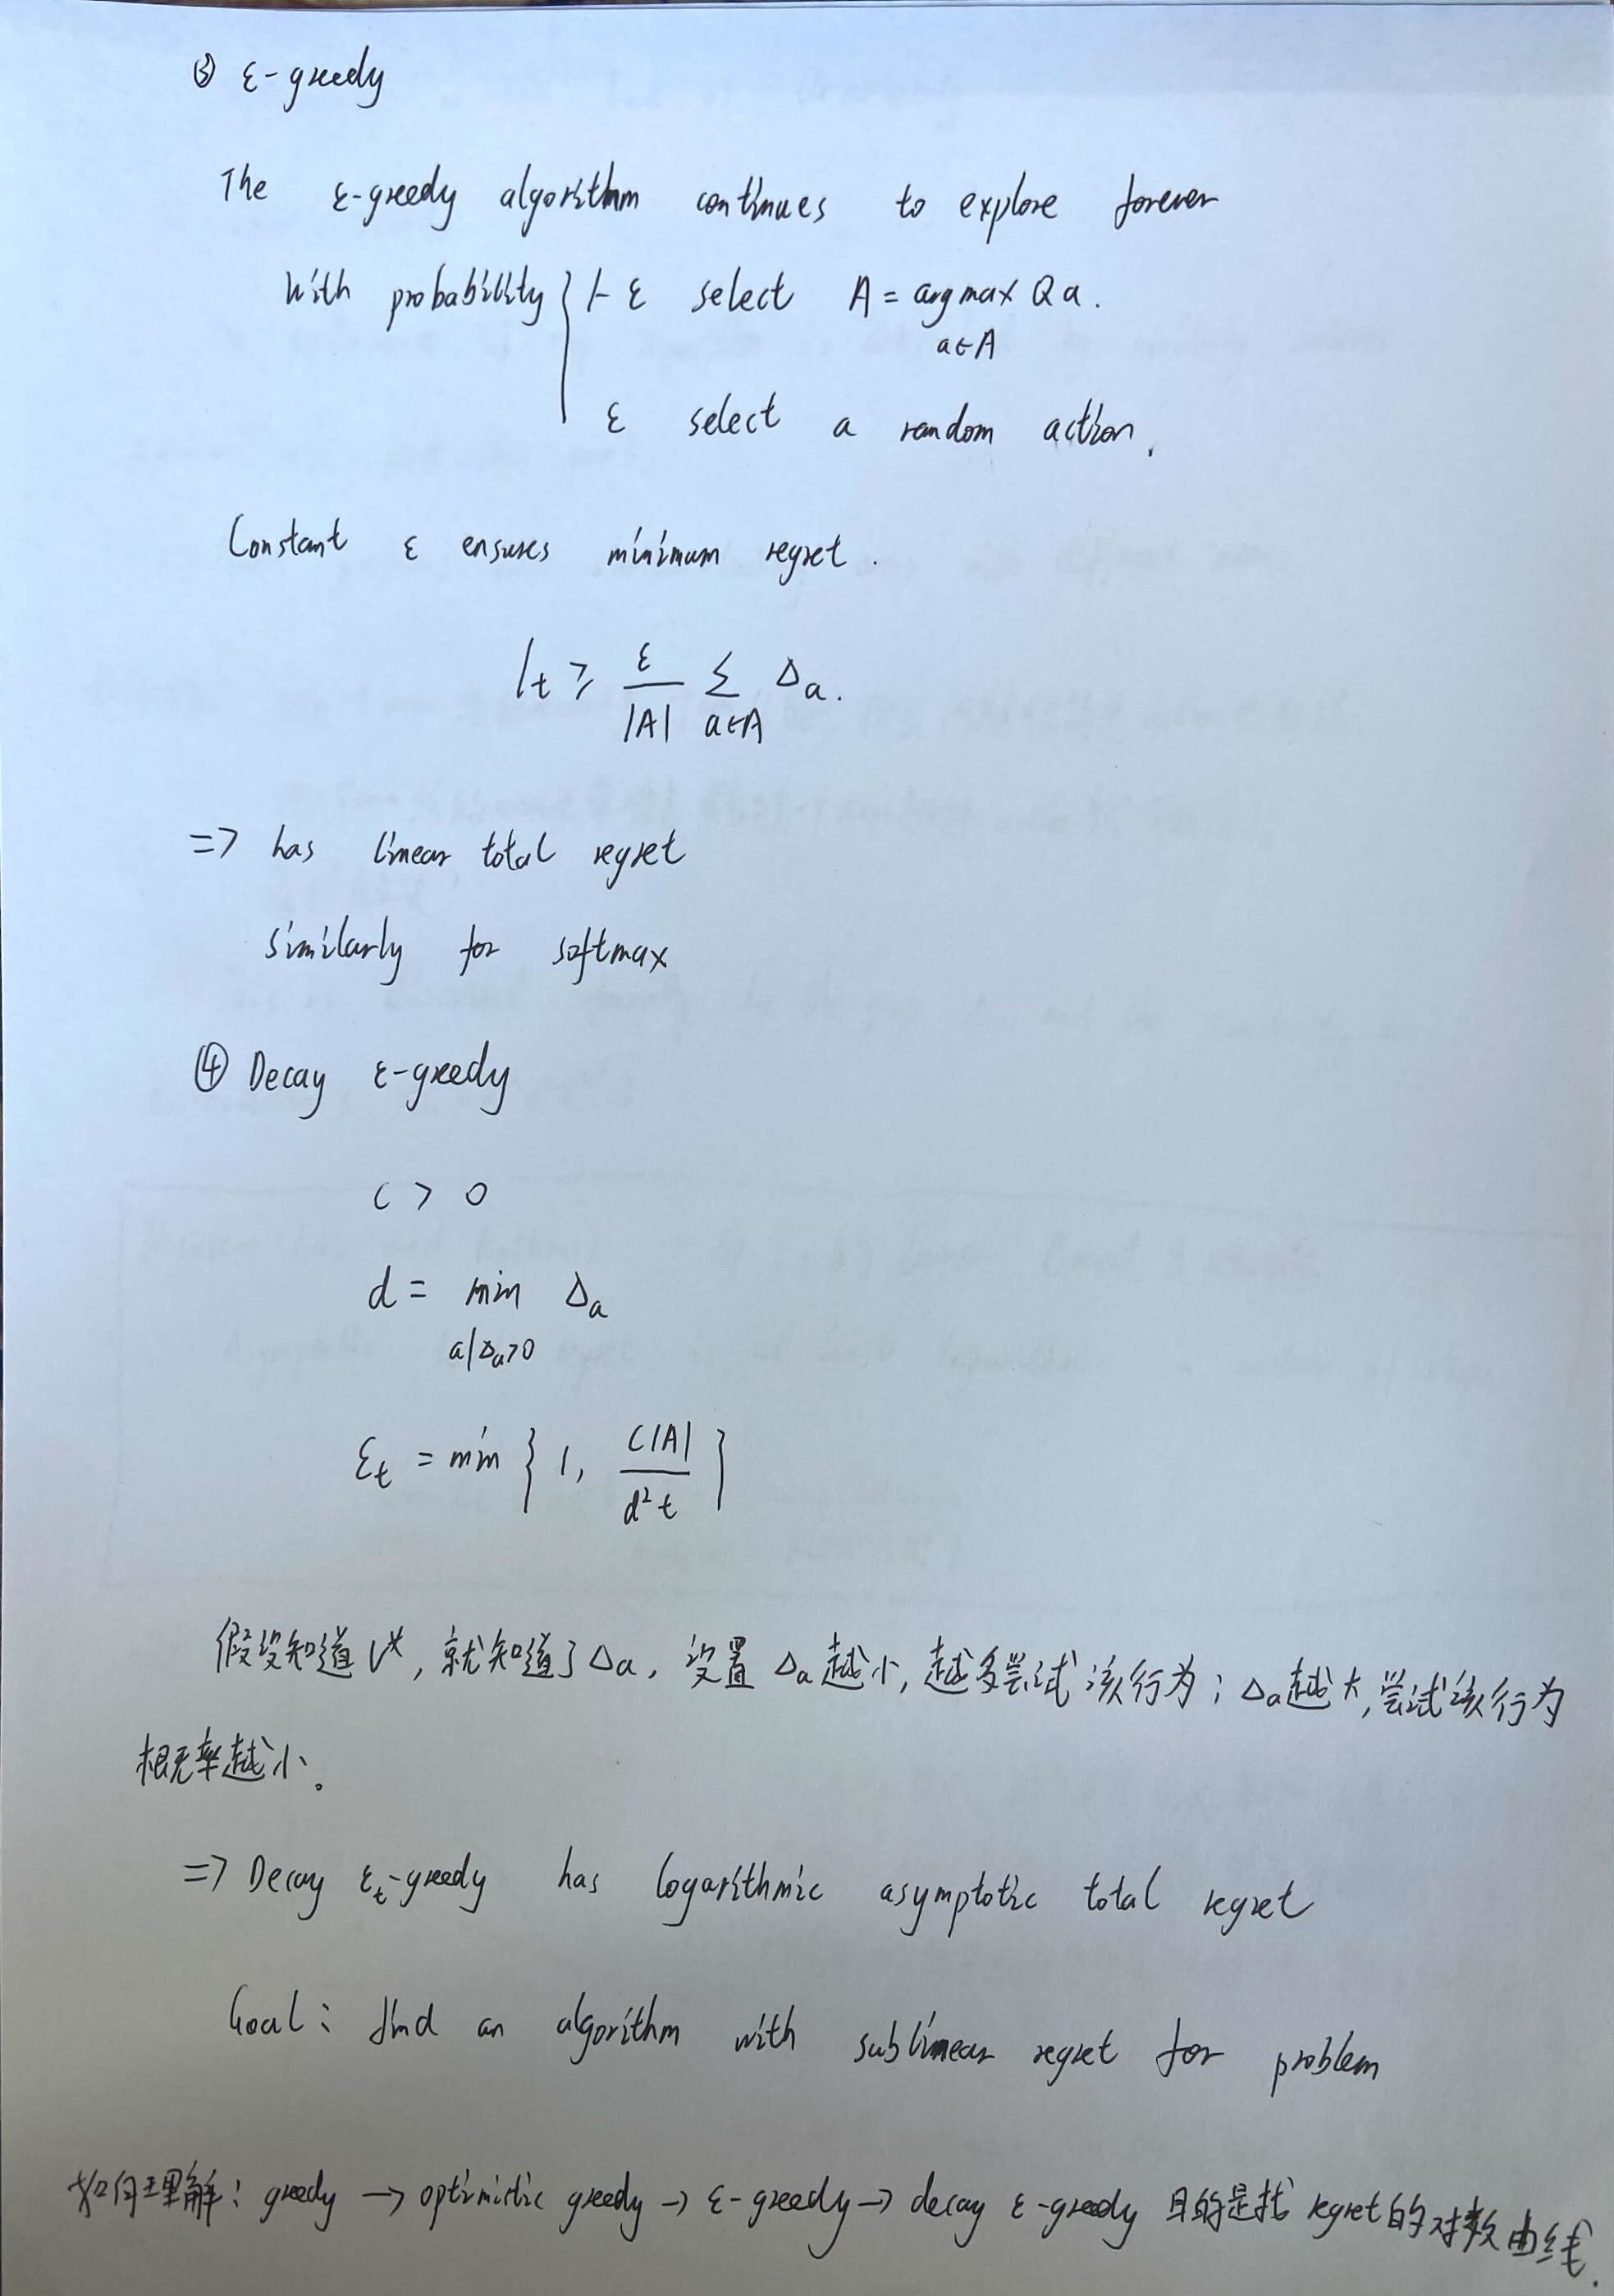 ③ ε-greedy
The ε-greedy algorithm continues to explore forever
With probability { 1-ε select A = argmax Qa.
a∈A
ε select a random action.
Constant ε ensures minimum regret.
lt ≥ ε/|A| Σ Δa.
a∈A
=> has linear total regret
similarly for softmax
④ Decay ε-greedy
C > 0
d = min Δa
a|Δa>0
εt = min { 1, C|A|/d²t }
假设知道V*,就知道了Δa,设置Δa越小,越多尝试该行为;Δa越大,尝试该行为
概率越小。
=> Decay εt-greedy has logarithmic asymptotic total regret
Goal: find an algorithm with sublinear regret for problem
如何理解:greedy → optimistic greedy → ε-greedy → decay ε-greedy 目的是找regret的对数曲线.